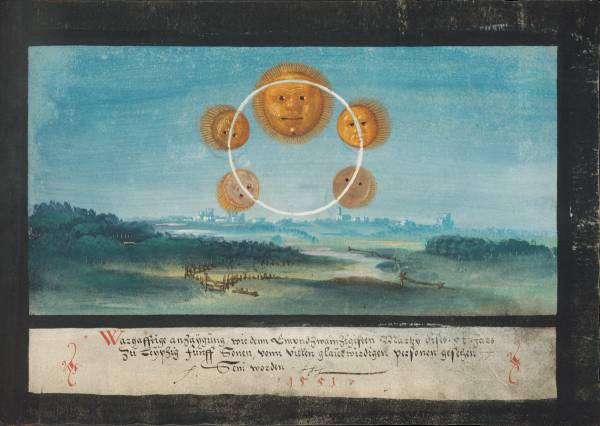 Warhafftige anzaygung, wie dem Ainundzwaintzigisten Marty diss 51 Jars
Zu Leyptzig Funff Sonen, vonn Villen glaubwirdigen personen gesehen
Sein worden
1551